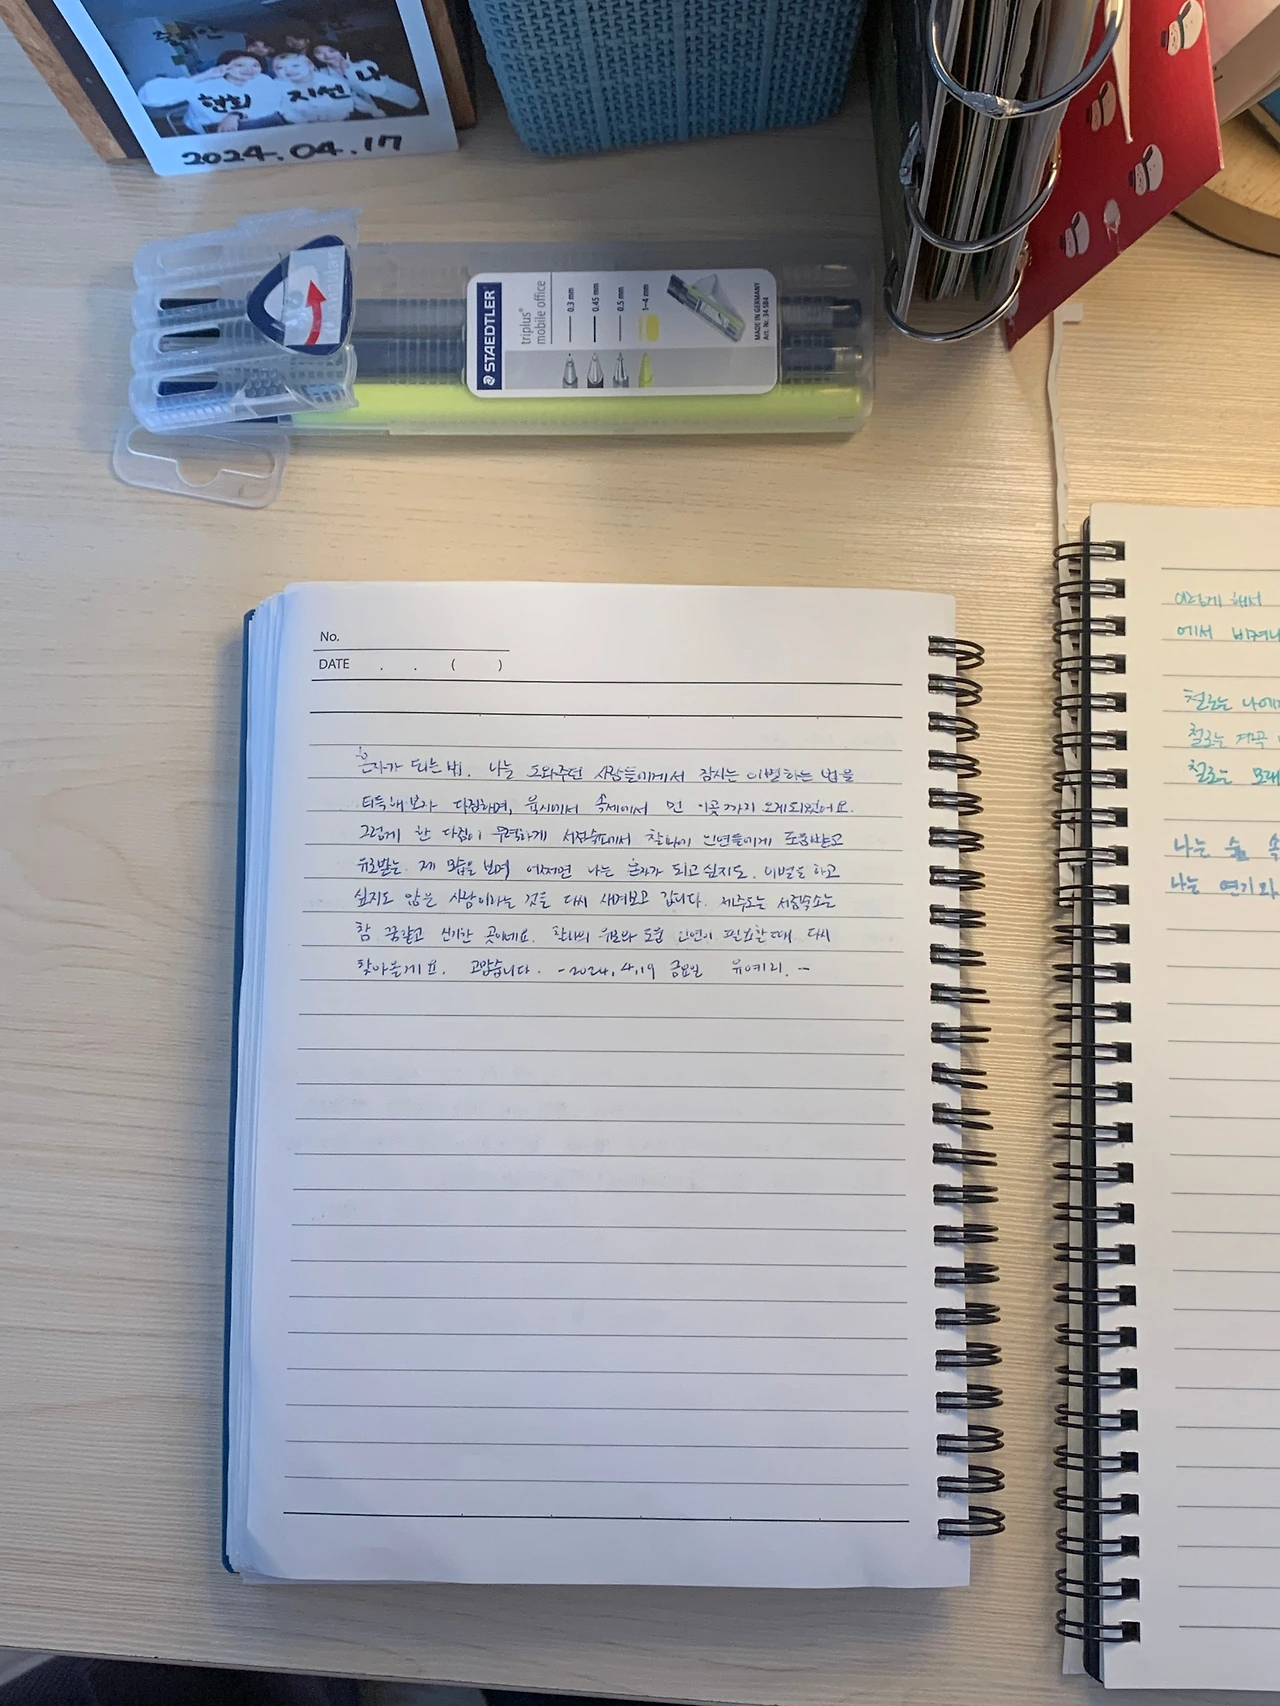 현희 지선 나
2024.04.17
STAEDTLER
triplus®
mobile office
0.3 mm
0.45 mm
0.5 mm
1-4 mm
MADE IN GERMANY
Art. Nr. 34 SB4
No.
DATE . . ( )
혼자가 되는 법. 나는 도와주던 사람들에게서 잠시는 이별하는 법을
터득해보자 다짐하며, 육지에서 속세에서 먼 이곳까지 오게되었어요.
그렇게 한 다짐이 무력하게 서점숙소에서 찰나의 인연들에게 도움받고
위로받는 제 모습을 보며 어쩌면 나는 혼자가 되고싶지도, 이별을 하고
싶지도 않은 사람이라는 것을 다시 새겨보고 갑니다. 제주도는 서점숙소는
참 꿈같고 신기한 곳이네요. 찰나의 위로와 도움 인연이 필요할때 다시
찾아올게요. 고맙습니다. -2024.4.19 금요일 유예리. -
어떻게 해서
에서
철로는 나에
철로는 계곡
철로는 모래
나는 숲 속
나는 연기와